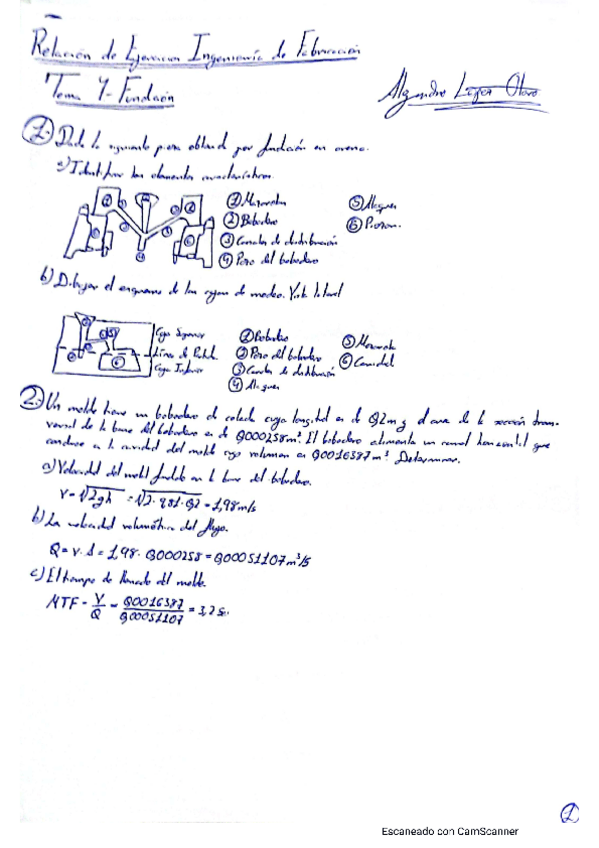 Relación de Ejercicios Ingeniería de Fabricación
Tema 4- Fundición
Alejandro López Otero
1. Dada la siguiente pieza obtenida por fundición en arena.
a) Identificar los elementos característicos.
① Mazarota ⑤ Ataques
② Bebedero ⑥ Piezas.
③ Canales de distribución
④ Pozo del bebedero
b) Dibujar el esquema de las cajas de moldeo. Vista lateral
Caja Superior
Línea de Partic.
Caja Inferior
① Bebedero ⑤ Mazarota
② Pozo del bebedero ⑥ Cavidad
③ Canales de distribución
④ Ataques
2. Un molde tiene un bebedero de colada cuya longitud es de 0,2m y el área de la sección trans-
versal de la base del bebedero es de 0,000258m². El bebedero alimenta un canal horizontal que
conduce a la cavidad del molde cuyo volumen es 0,0016387m³. Determinar.
a) Velocidad del metal fundido en la base del bebedero.
V=√2gh = √2·9,81·0,2 = 1,98m/s
b) La velocidad volumétrica del flujo.
Q = v·A = 1,98·0,000258 = 0,00051107m³/s
c) El tiempo de llenado del molde.
MTF = V/Q = 0,0016387/0,00051107 = 3,2 s.
1
Escaneado con CamScanner